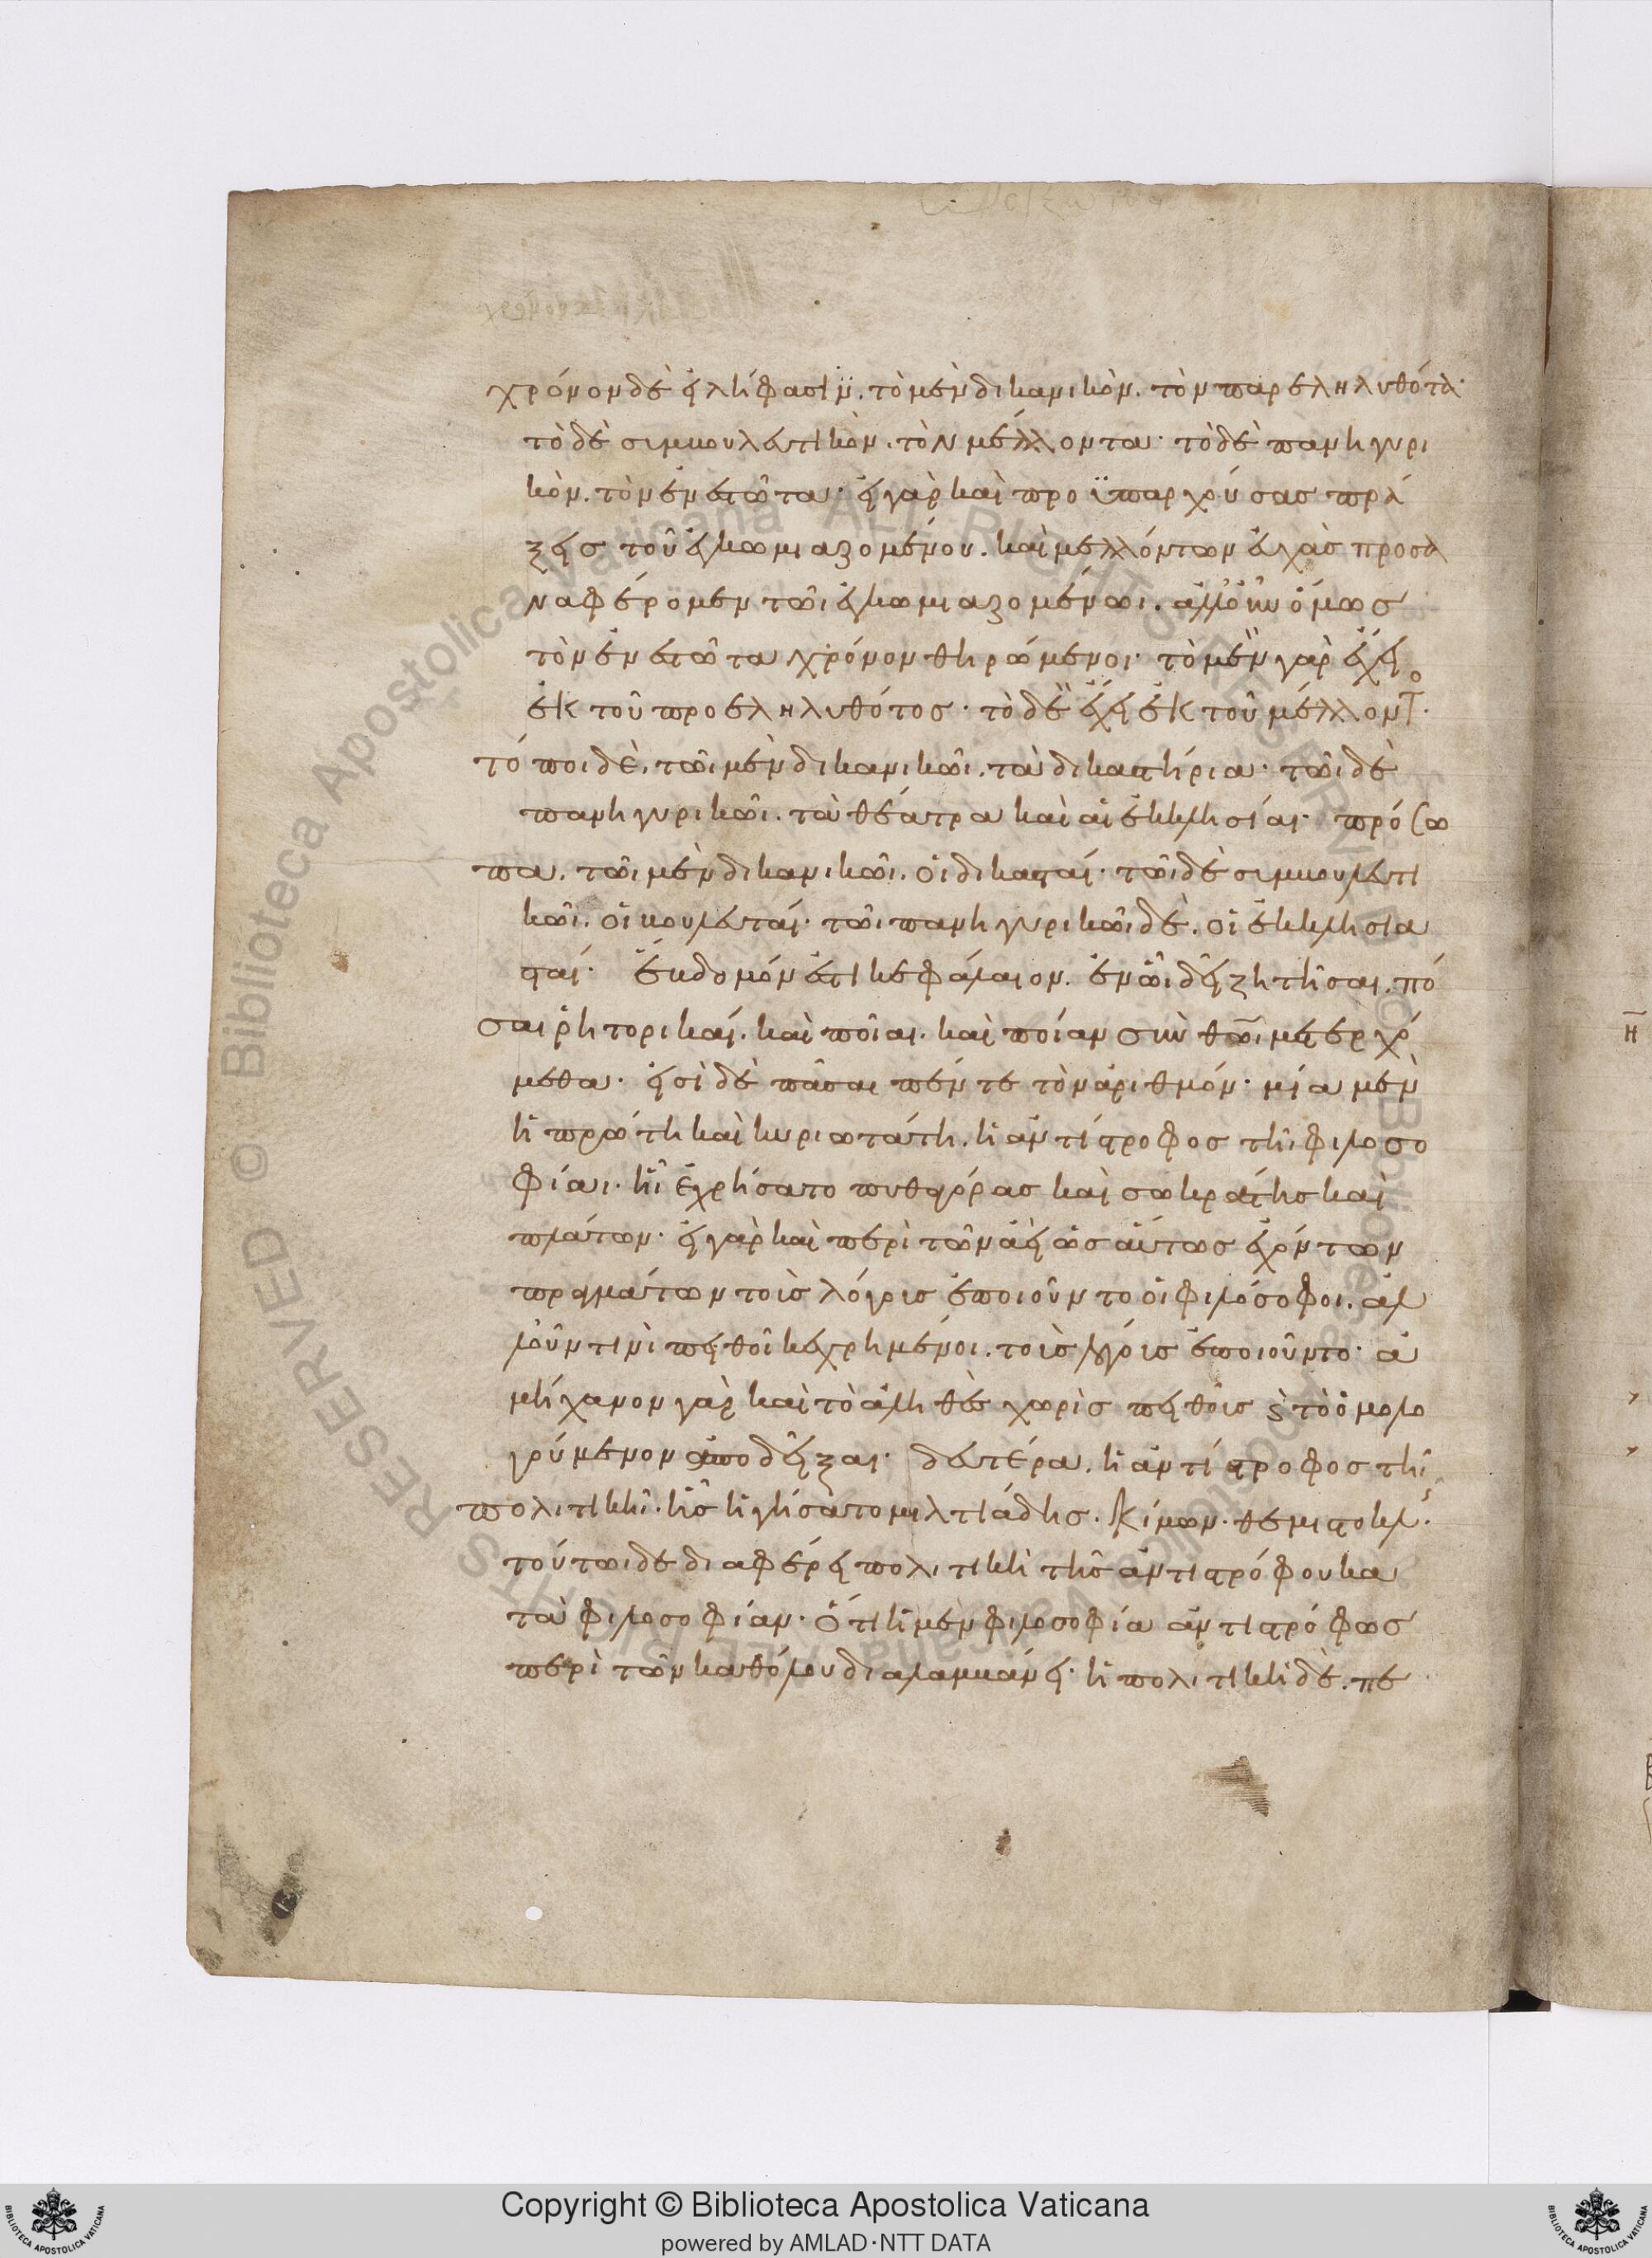 χρόνον δὲ εἰλήφασϊν. τὸ μὲν δικανικὸν. τὸν παρεληλυθότα·
τὸ δὲ συμβουλευτικὸν. τὸν μέλλοντα· τὸ δὲ πανηγυρι
κὸν. τὸν ἐνεστῶτα· εἰ γὰρ καὶ προϋπαρχούσας πρά
ξεις τοῦ ἐγκωμιαζομένου. καὶ μελλόντων εὐχὰς προσα
ναφέρομεν τῶι ἐγκωμιαζομένωι. ἀλλ' οὖν ὅμως
τὸν ἐνεστῶτα χρόνον θηρώμενοι· τὸ μὲν γὰρ ἔχει
ἐκ τοῦ προεληλυθότος· τὸ δὲ ἔχει ἐκ τοῦ μέλλοντο·
τόποι δὲ. τῶι μὲν δικανικῶι. τὰ δικαστήρια· τῶι δὲ
πανηγυρικῶι. τὰ θέατρα καὶ αἱ ἐκκλησίαι· πρόσω
πα. τῶι μὲν δικανικῶι. οἱ δικασταί· τῶι δὲ συμβουλευτι
κῶι. οἱ βουλευταί· τῶι πανηγυρικῶι δὲ. οἱ ἐκκλησια
σταί· ἕβδομόν ἐστι κεφάλαιον. ἐν ὧι δεῖ ζητῆσαι. πό
σαι ῥητορικαί. καὶ ποῖαι. καὶ ποίαν σὺν θῶι μετερχό
μεθα· εἰσὶ δὲ πᾶσαι πέντε τὸν ἀριθμόν· μία μὲν
ἡ πρώτη καὶ κυριωτάτη. ἡ ἀντίστροφος τῆι φιλοσο
φίαι· ἧι ἐχρήσατο πυθαγόρας καὶ σωκράτης καὶ
πλάτων· εἰ γὰρ καὶ περὶ τῶν ἀεὶ ὡσαύτως ἐχόντων
πραγμάτων τοὶς λόγοις ἐποιοῦντο οἱ φιλόσοφοι. ἀλ
λ' οὖν τινὶ πειθοῖ κεχρημένοι. τοὶς λόγοις ἐποιοῦντο· ἀ
μήχανον γὰρ καὶ τὸ ἀληθὲς χωρὶς πειθοῖς ϛ̀ τὸ ὁμολο
γούμενον ἀποδεῖξαι· δευτέρα. ἡ ἀντίστροφος τῆι
πολιτικῆι· ἧς ἡγήσατο μιλτιάδης. κίμων. θεμιστοκλ.
τούτωι δὲ διαφέρει πολιτικὴ τῆς ἀντιστρόφου κα
τὰ φιλοσοφίαν· ὅτι ἡ μὲν φιλοσοφία ἀντιστρόφως
περὶ τῶν καθόλου διαλαμβάνει· ἡ πολιτικὴ δὲ. πε
Copyright © Biblioteca Apostolica Vaticana
powered by AMLAD·NTT DATA